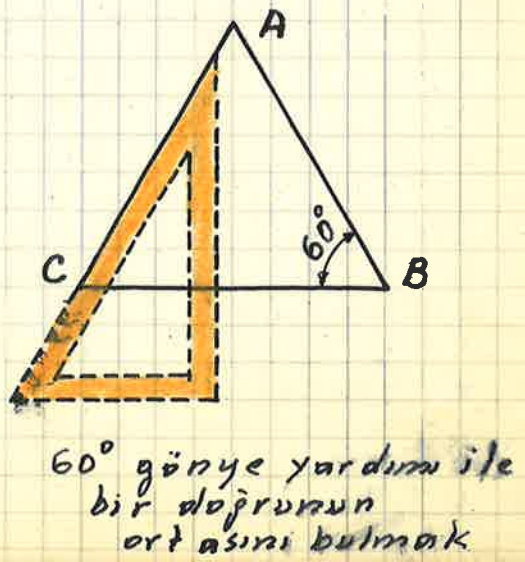 A
60°
C
B
60° gönye yardımı ile
bir doğrunun
ortasını bulmak